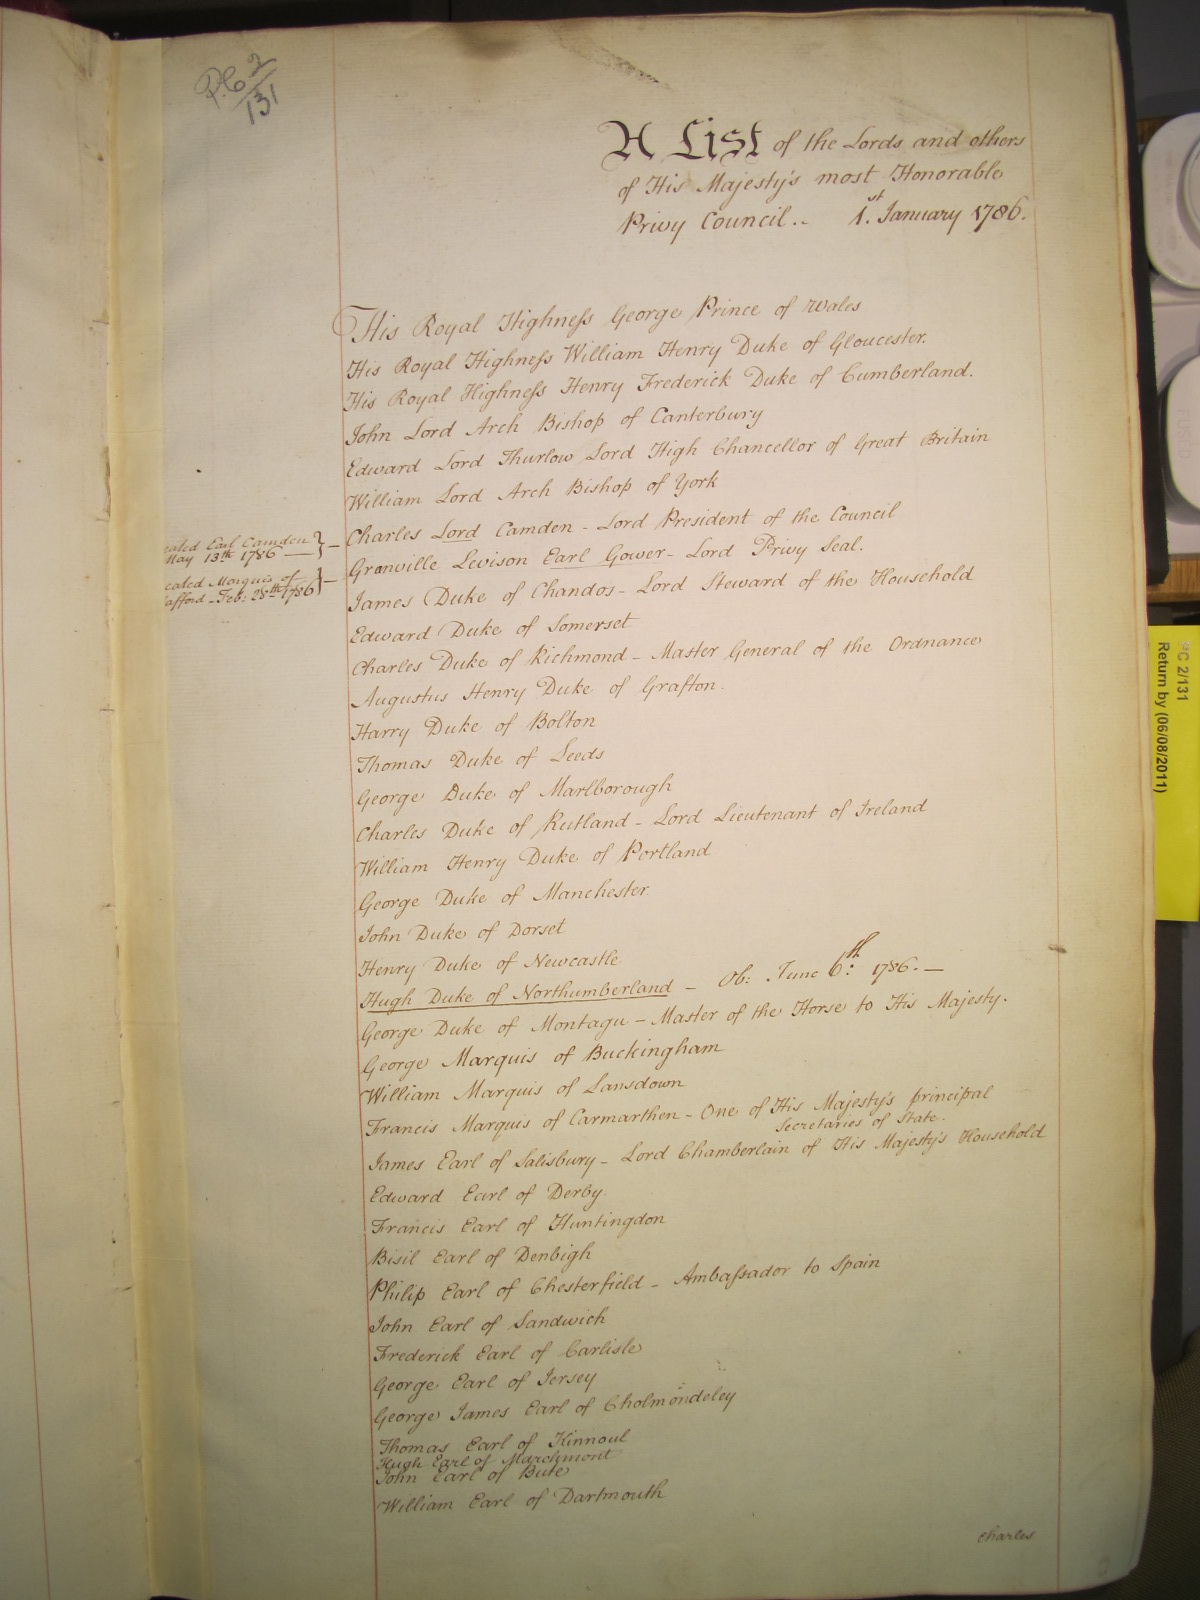 P.C 2/131
A List of the Lords and others
of His Majesty's most Honorable
Privy Council.. 1.st January 1786.
His Royal Highneſs George Prince of Wales
His Royal Highneſs William Henry Duke of Gloucester.
His Royal Highneſs Henry Frederick Duke of Cumberland.
John Lord Arch Bishop of Canterbury
Edward Lord Thurlow Lord High Chancellor of Great Britain
William Lord Arch Bishop of York
eated Earl Camden
May 13th 1786
Charles Lord Camden - Lord President of the Council
Granville Levison Earl Gower - Lord Privy Seal.
eated Marquis of
afford - Feb: 28th 1786
James Duke of Chandos - Lord Steward of the Household
Edward Duke of Somerset
Charles Duke of Richmond - Master General of the Ordnance
Augustus Henry Duke of Grafton.
Harry Duke of Bolton
Thomas Duke of Leeds
George Duke of Marlborough
Charles Duke of Rutland - Lord Lieutenant of Ireland
William Henry Duke of Portland
George Duke of Manchester.
John Duke of Dorset
Henry Duke of Newcastle
Hugh Duke of Northumberland - Ob: June 6:th 1786. -
George Duke of Montagu - Master of the Horse to His Majesty.
George Marquis of Buckingham
William Marquis of Lansdown
Francis Marquis of Carmarthen - One of His Majesty's principal
Secretaries of State.
James Earl of Salisbury - Lord Chamberlain of His Majesty's Household
Edward Earl of Derby.
Francis Earl of Huntingdon
Bisil Earl of Denbigh
Philip Earl of Chesterfield - Ambaſsador to Spain
John Earl of Sandwich
Frederick Earl of Carlisle
George Earl of Jersey
George James Earl of Cholmondeley
Thomas Earl of Kinnoul
Hugh Earl of Marchmont
John Earl of Bute
William Earl of Dartmouth
Charles
PC 2/131
Return by (06/08/2011)